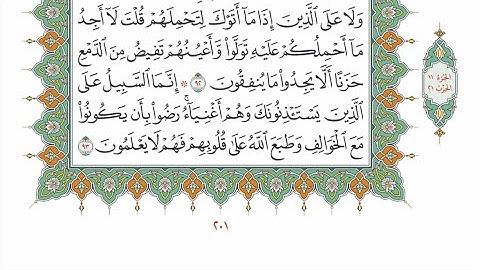 وَلَا عَلَى الَّذِينَ إِذَا مَا أَتَوْكَ لِتَحْمِلَهُمْ قُلْتَ لَا أَجِدُ
مَا أَحْمِلُكُمْ عَلَيْهِ تَوَلَّوا وَّأَعْيُنُهُمْ تَفِيضُ مِنَ الدَّمْعِ
حَزَنًا أَلَّا يَجِدُوا مَا يُنفِقُونَ ٩٢ ۞ إِنَّمَا السَّبِيلُ عَلَى
الَّذِينَ يَسْتَـْٔذِنُونَكَ وَهُمْ أَغْنِيَاءُ ۚ رَضُوا بِأَن يَكُونُوا
مَعَ الْخَوَالِفِ وَطَبَعَ اللَّهُ عَلَىٰ قُلُوبِهِمْ فَهُمْ لَا يَعْلَمُونَ ٩٣
الجزء ١١
الحزب ٢١
٢٠١